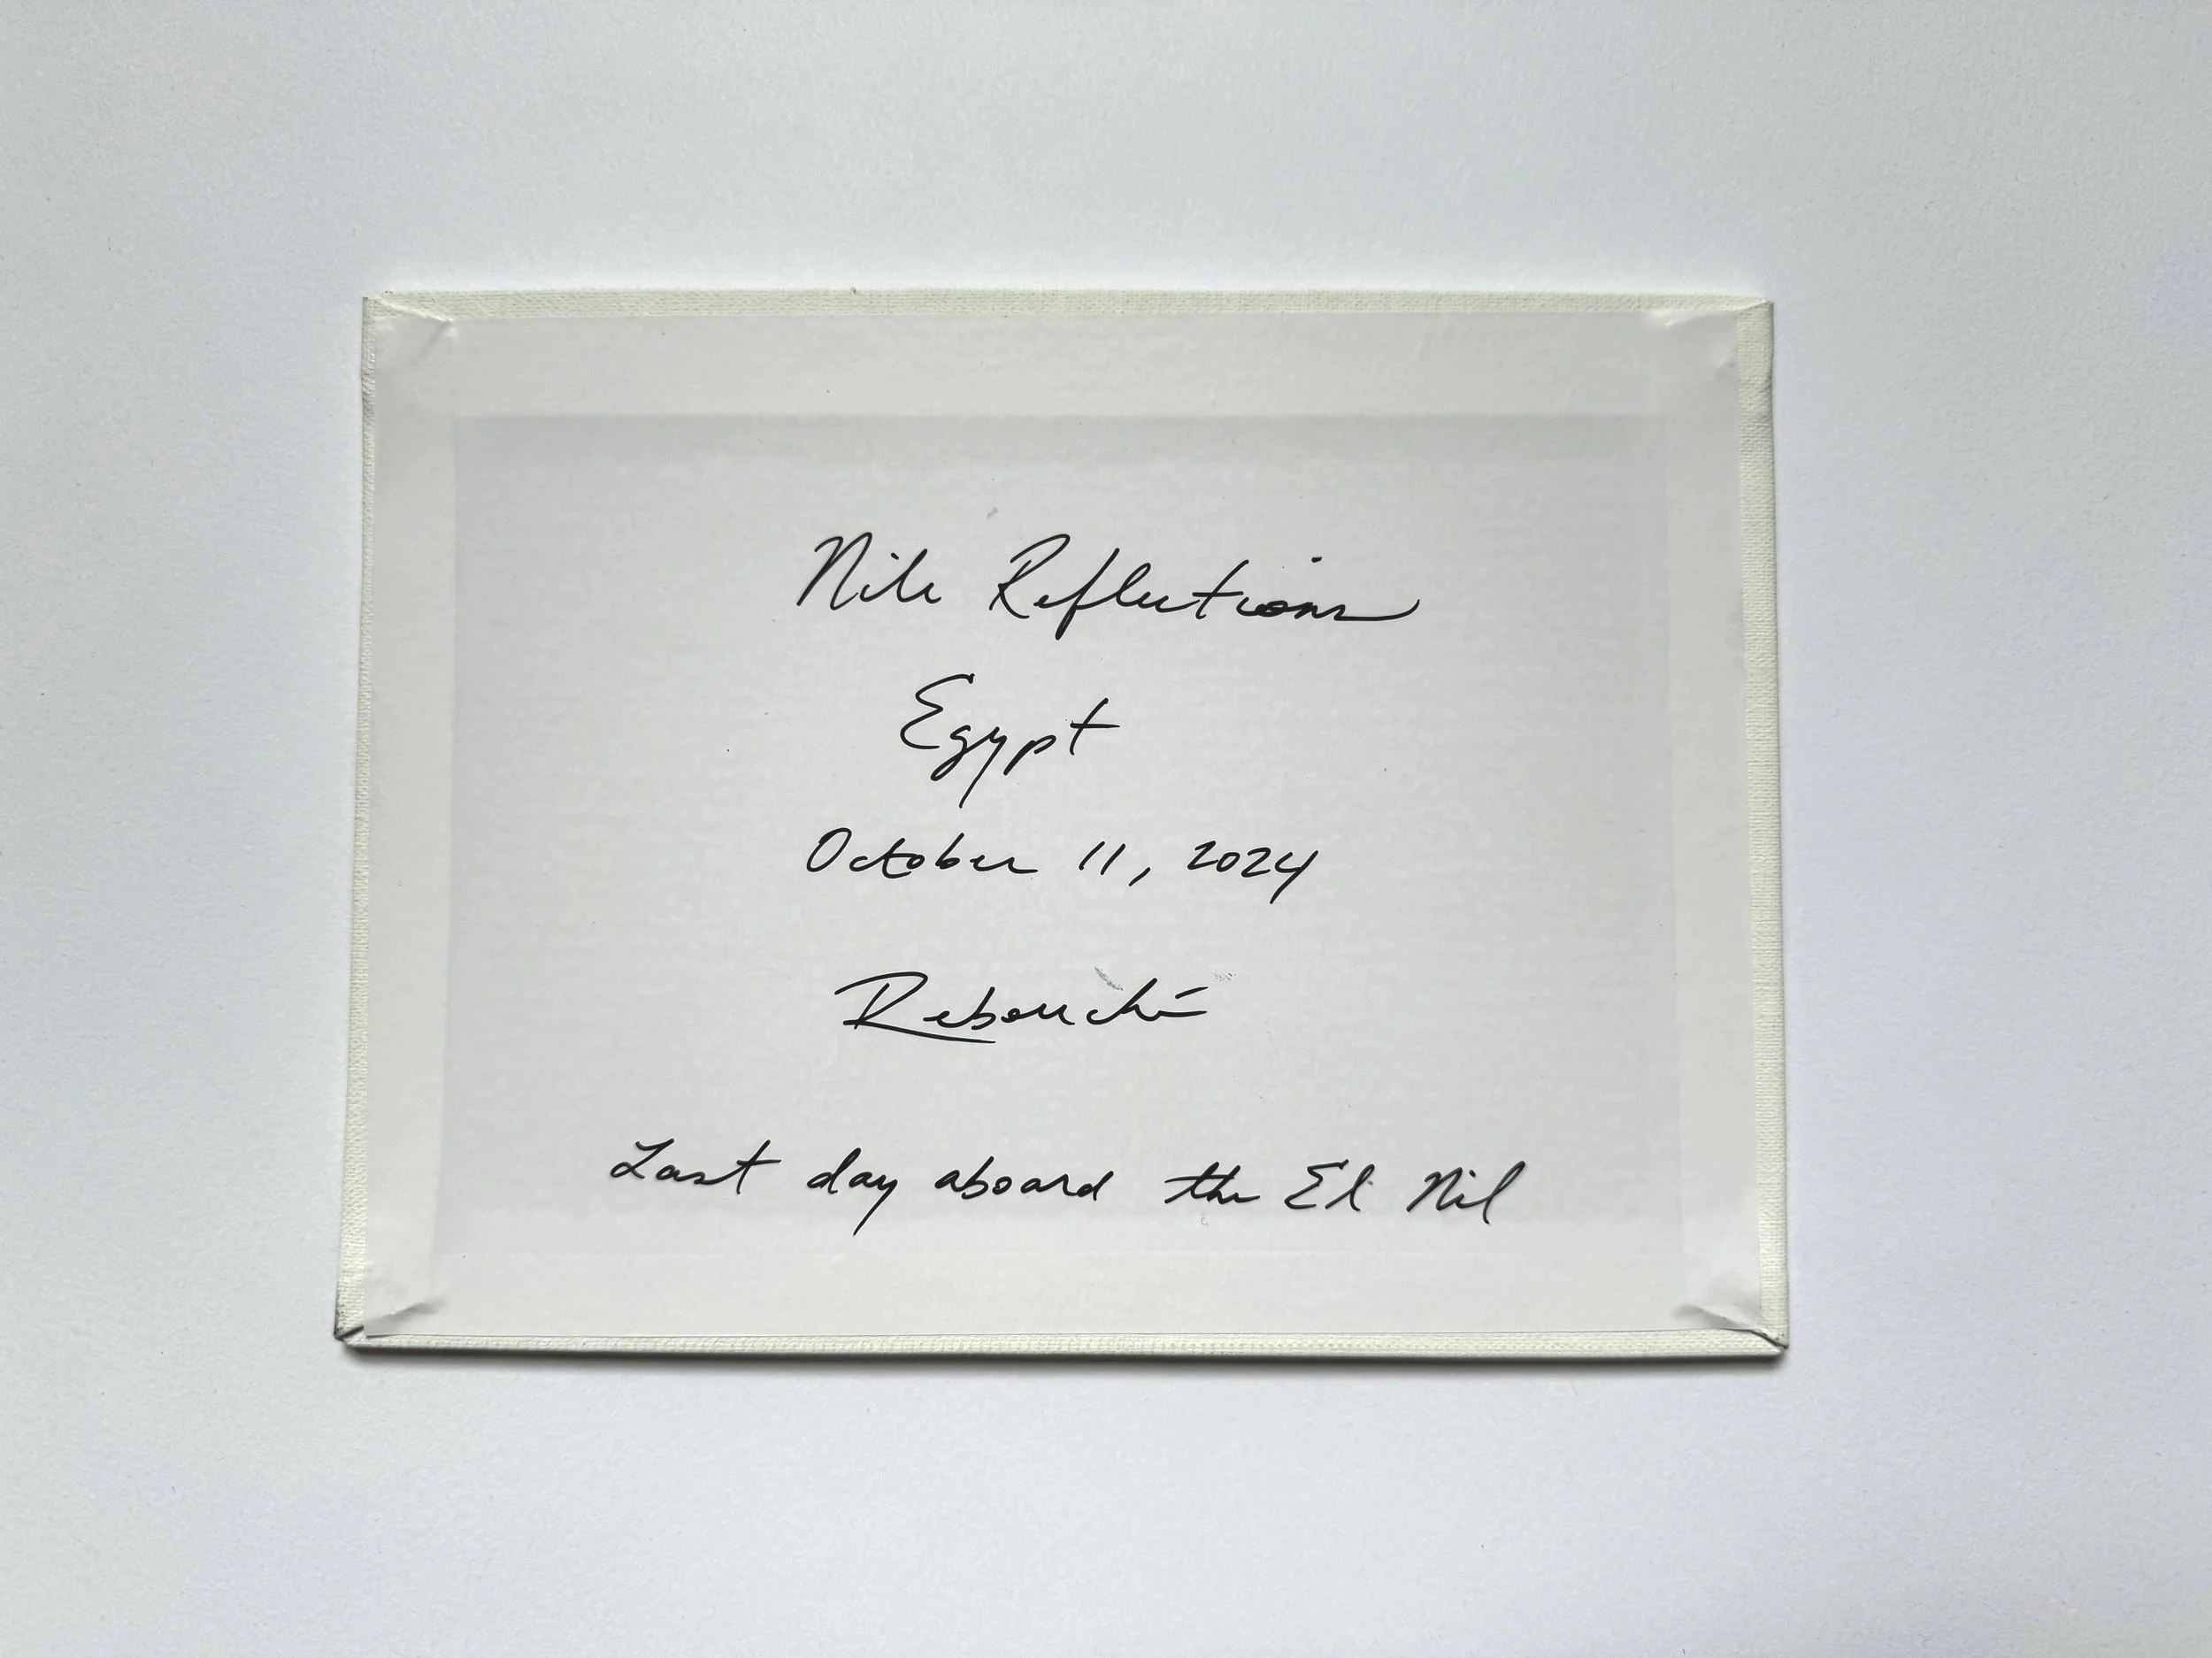 Nile Reflections
Egypt
October 11, 2024
Rebouché
Last day aboard the El Nil